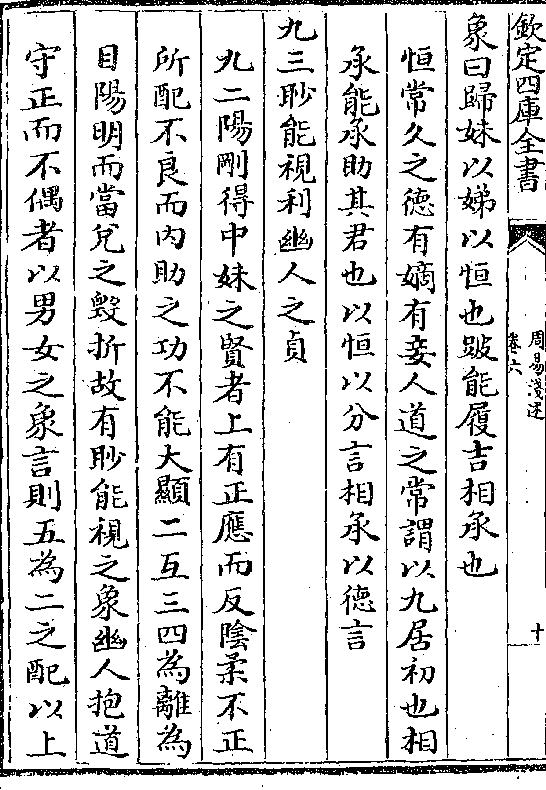 欽定四庫全書
周易淺述
卷六
十
象曰歸妹以娣以恒也跛能履吉相承也
恒常久之德有嫡有妾人道之常謂以九居初也相
承能承助其君也以恒以分言相承以德言
九三眇能視利幽人之貞
九二陽剛得中妹之賢者上有正應而反陰柔不正
所配不良而內助之功不能大顯二互三四為離為
目陽明而當兌之毀折故有眇能視之象幽人抱道
守正而不偶者以男女之象言則五為二之配以上